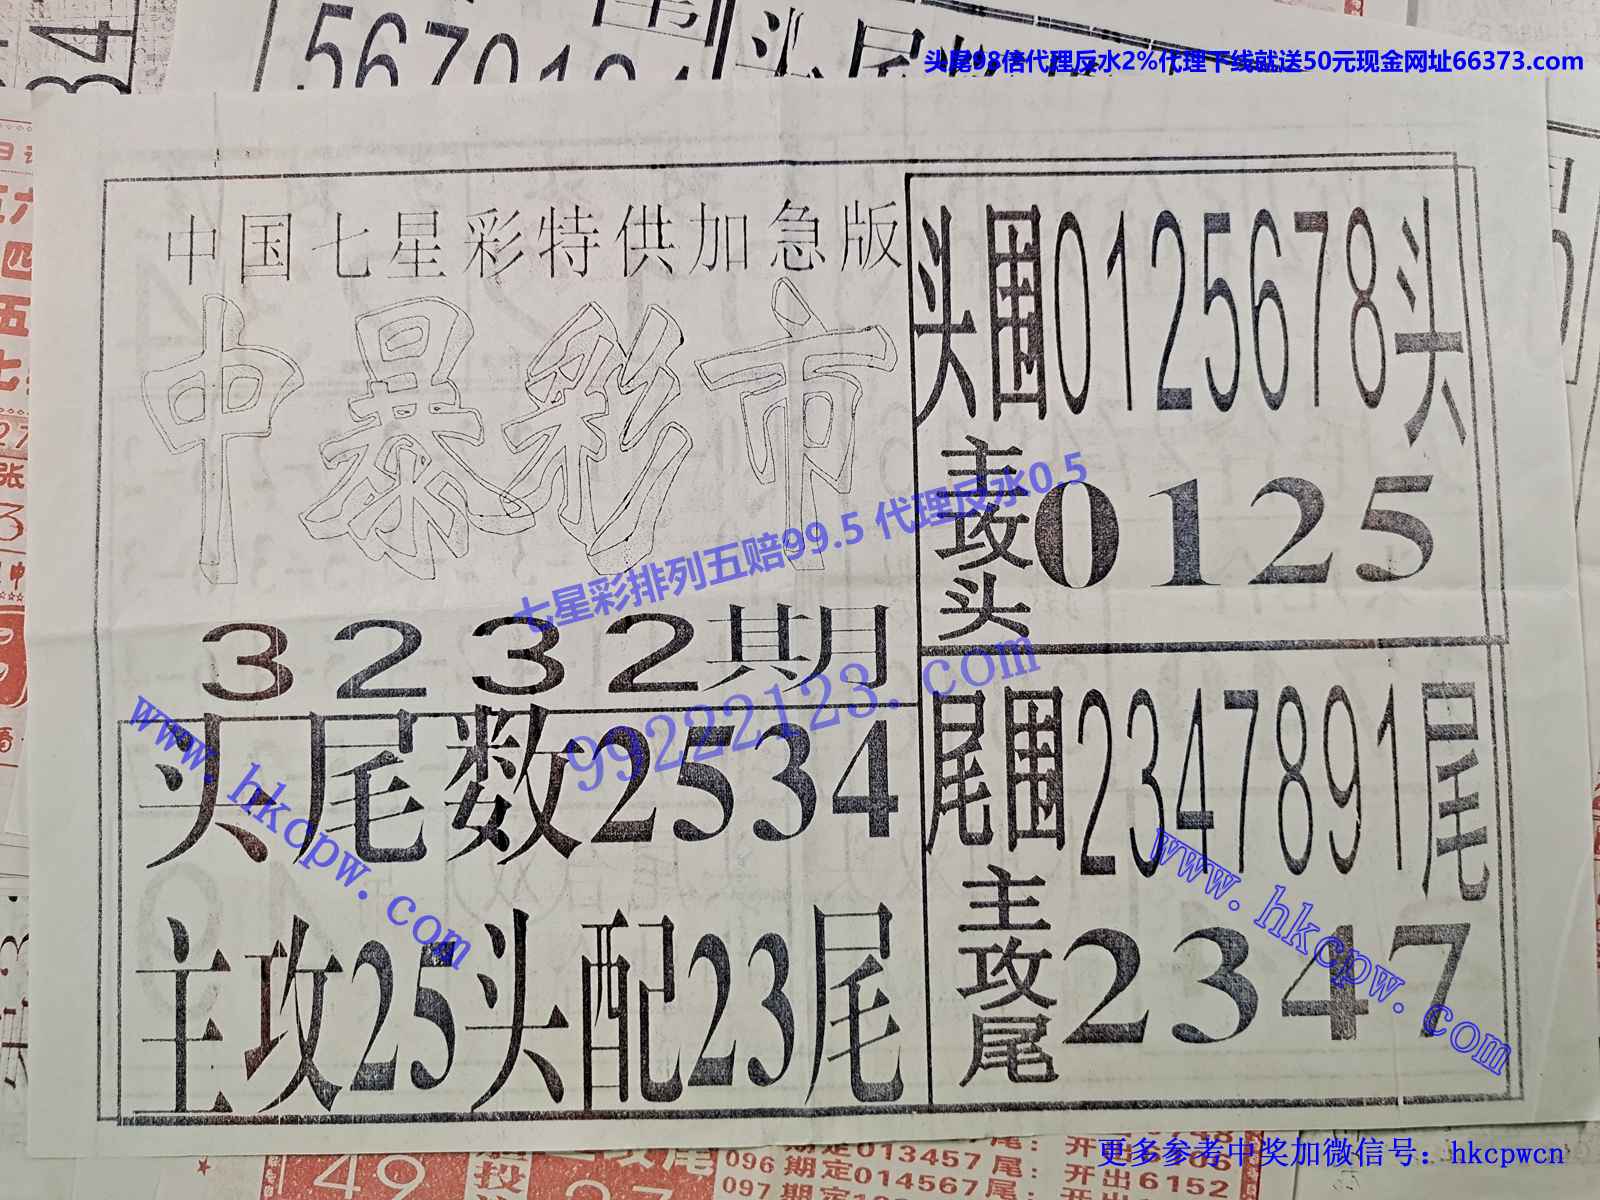 567
头尾98倍代理反水2%代理下线就送50元现金网址66373.com
中国七星彩特供加急版
中暴彩市
3232期
头尾数2534
主攻25头配23尾
头围0125678头
主攻头0125
尾围2347891尾
主攻尾2347
七星彩排列五赔99.5 代理反水0.5
99222123.com
www.hkcpw.com
www.hkcpw.com
49
096期定013457尾:
097期定
014567尾:
开出6152
更多参考中奖加微信号：hkcpwcn